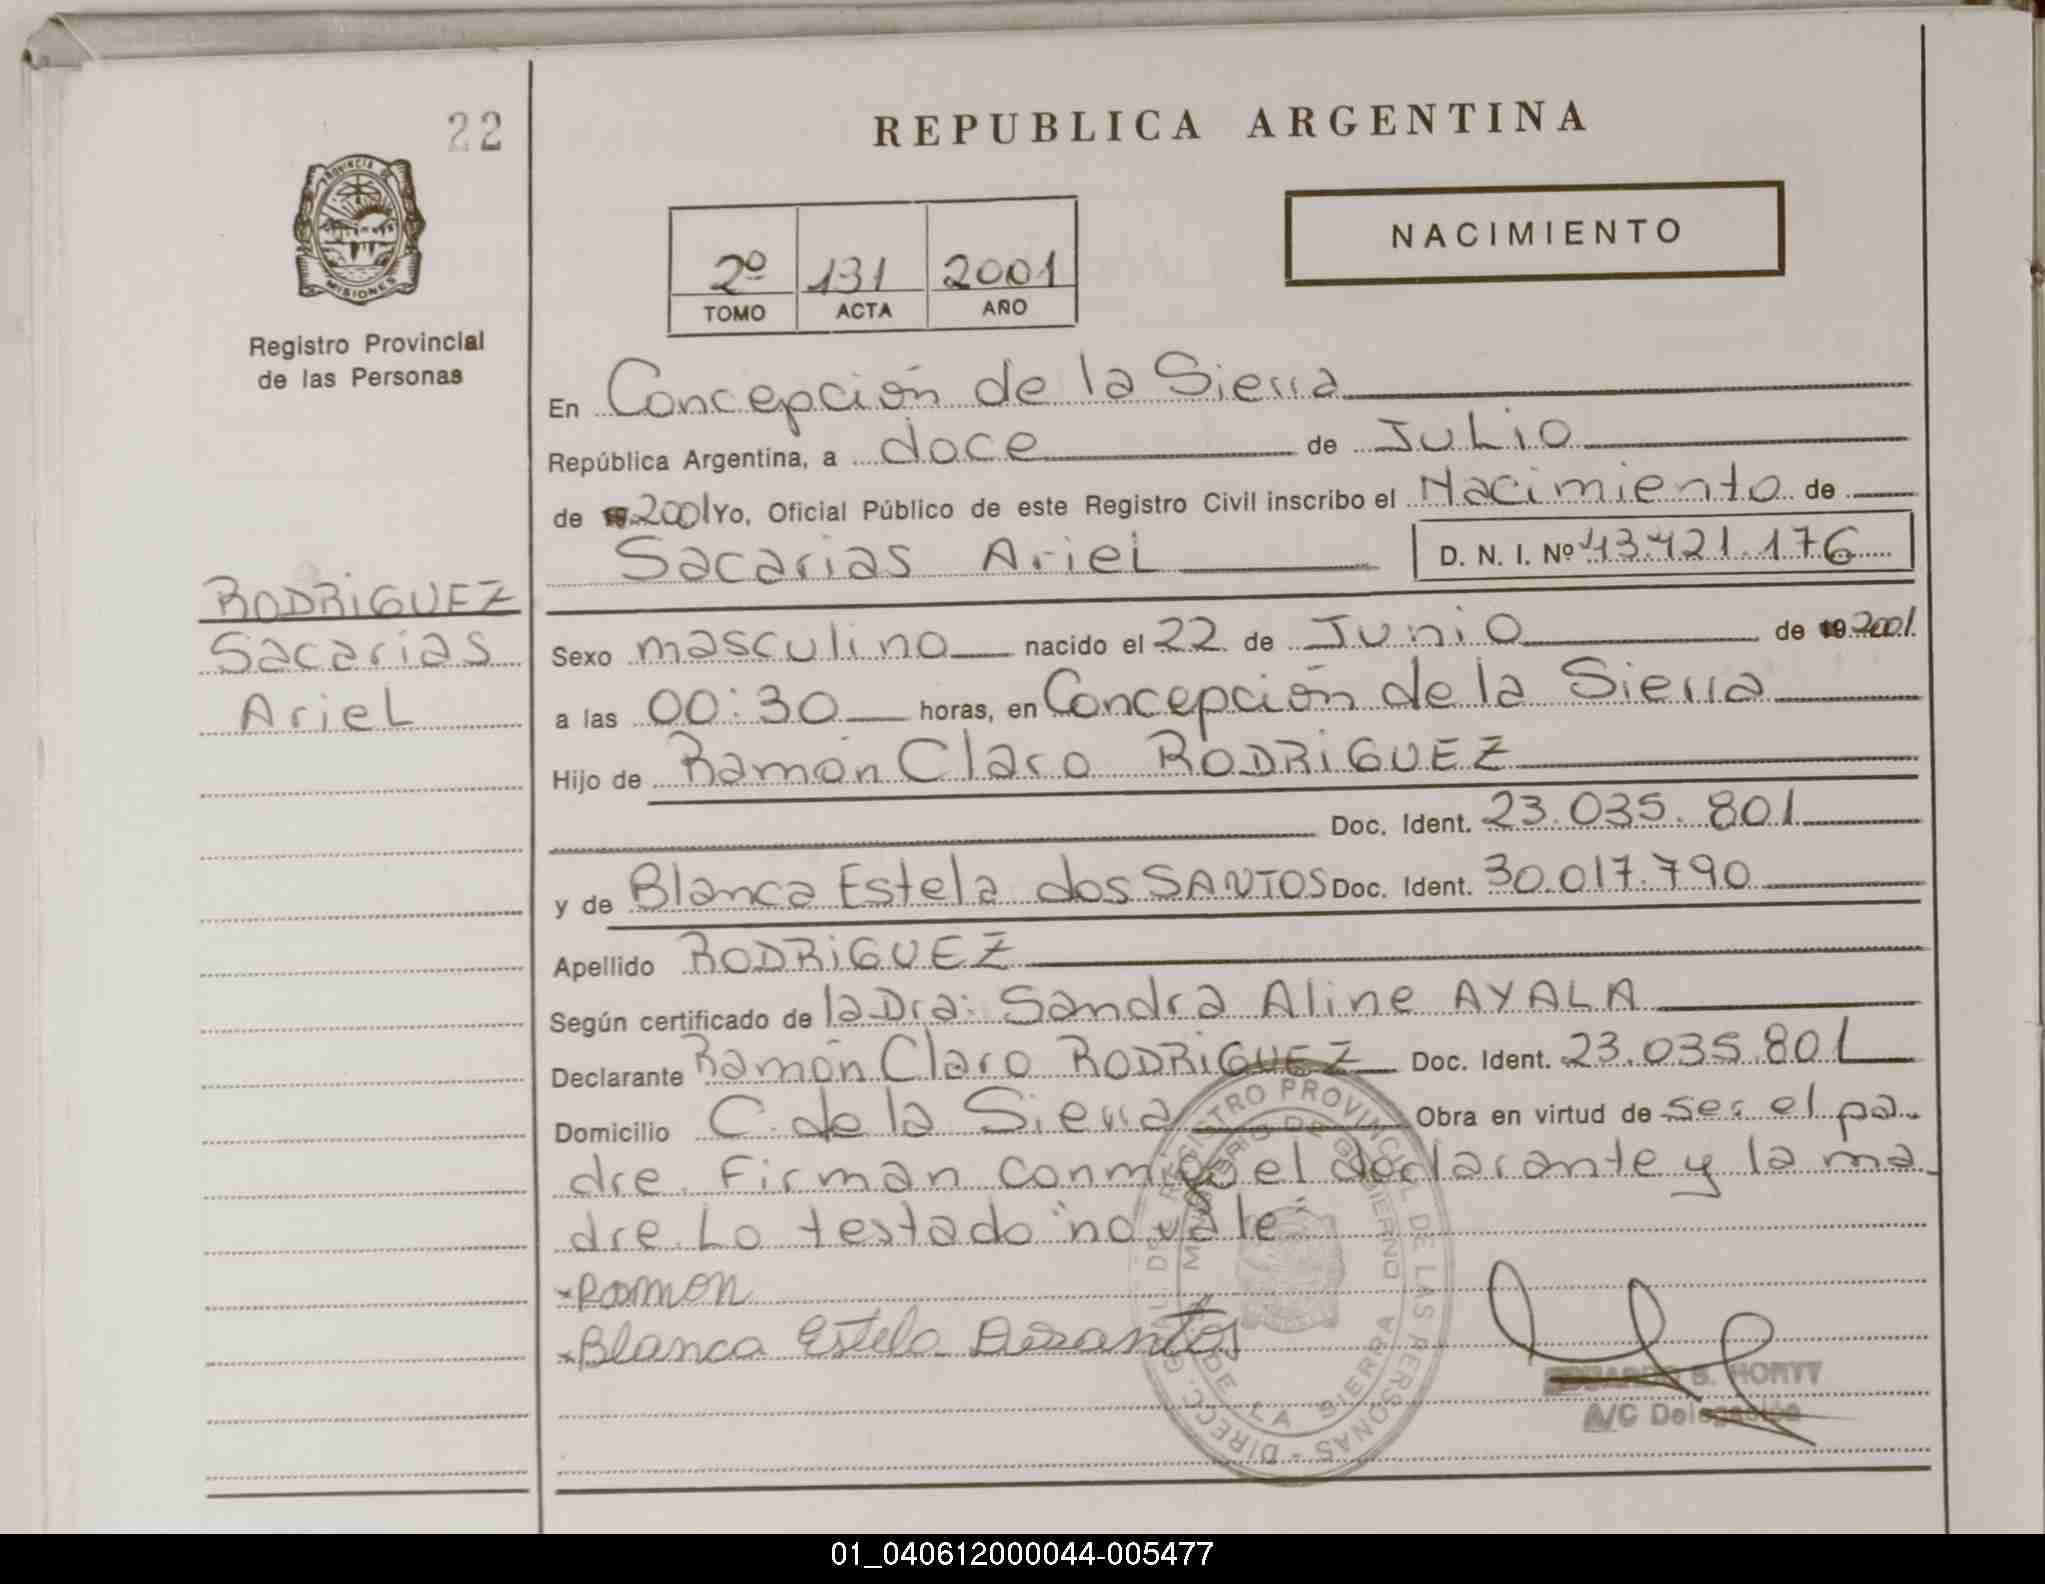 22
PROVINCIA DE
MISIONES
Registro Provincial
de las Personas
RODRIGUEZ
Sacarias
Ariel
REPUBLICA ARGENTINA
NACIMIENTO
2º 131 2001
TOMO ACTA AÑO
En Concepción de la Sierra
República Argentina, a doce de Julio
de 19 2001 Yo, Oficial Público de este Registro Civil inscribo el Nacimiento de
Sacarias Ariel D. N. I. Nº 43.421.176
Sexo masculino nacido el 22 de Junio de 19 2001
a las 00:30 horas, en Concepción de la Sierra
Hijo de Ramón Claro RODRIGUEZ
Doc. Ident. 23.035.801
y de Blanca Estela dos SANTOS Doc. Ident. 30.017.790
Apellido RODRIGUEZ
Según certificado de la Dra: Sandra Aline AYALA
Declarante Ramón Claro RODRIGUEZ Doc. Ident. 23.035.801
Domicilio C. de la Sierra Obra en virtud de ser el pa-
dre. Firman conmigo el declarante y la ma-
dre. Lo testado "no vale"
x Ramon
x Blanca Estela Desantos
DIRECC. GRAL DEL REGISTRO PROVINCIAL DE LAS PERSONAS -
MINISTERIO DE GOBIERNO
DE LA SIERRA
EDUARDO S. HORTT
A/C Delegación
01_040612000044-005477